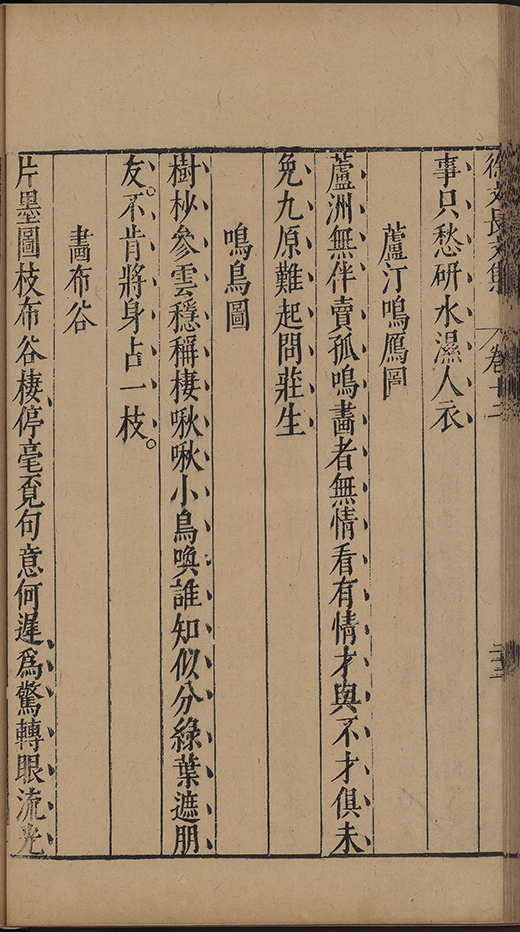 徐文長文集 卷十二
事只愁研水濕人衣
蘆汀鳴鴈圖
蘆洲無伴賣孤鳴畵者無情看有情才與不才俱未
免九原難起問莊生
鳴鳥圖
樹杪參雲穩稱棲啾啾小鳥喚誰知似分綠葉遮朋
友。不肯將身占一枝。
畵布谷
片墨圖枝布谷棲停毫覔句意何遲爲驚轉眼流光